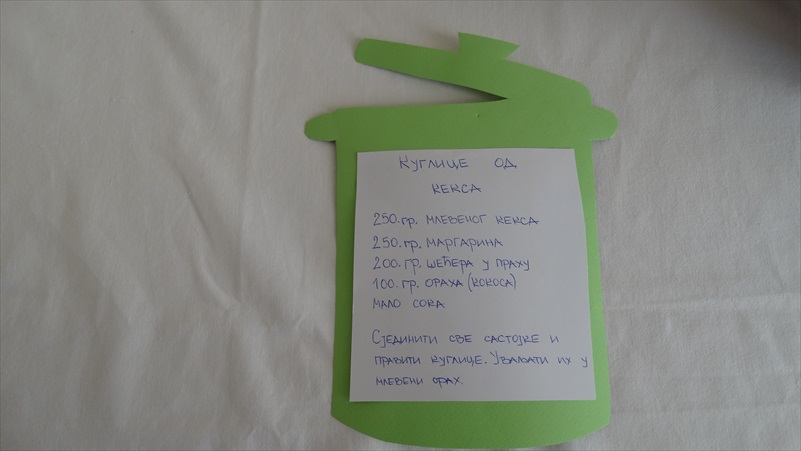 КУГЛИЦЕ ОД
КЕКСА
250.гр. МЛЕВЕНОГ КЕКСА
250.гр. МАРГАРИНА
200.ГР. ШЕЋЕРА У ПРАХУ
100.ГР. ОРАХА (КОКОСА)
МАЛО СОКА
СЈЕДИНИТИ СВЕ САСТОЈКЕ И
ПРАВИТИ КУГЛИЦЕ. УВАЉАТИ ИХ У
МЛЕВЕНИ ОРАХ.